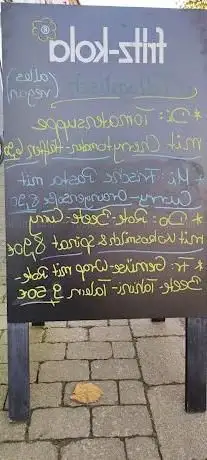 fritz-kola
(alles vegan)
* Di: Tomatensuppe
mit Cherrytomaten-
* Mi: Frische Pasta mit
Curry-Orangensoße 8,90
* Do: Rote-Beete-Curry
mit Kokosmilch & Spinat 8,90€
* Fr: Gemüse Wrap mit Rote
Beete Tahini-Talern 9,50€